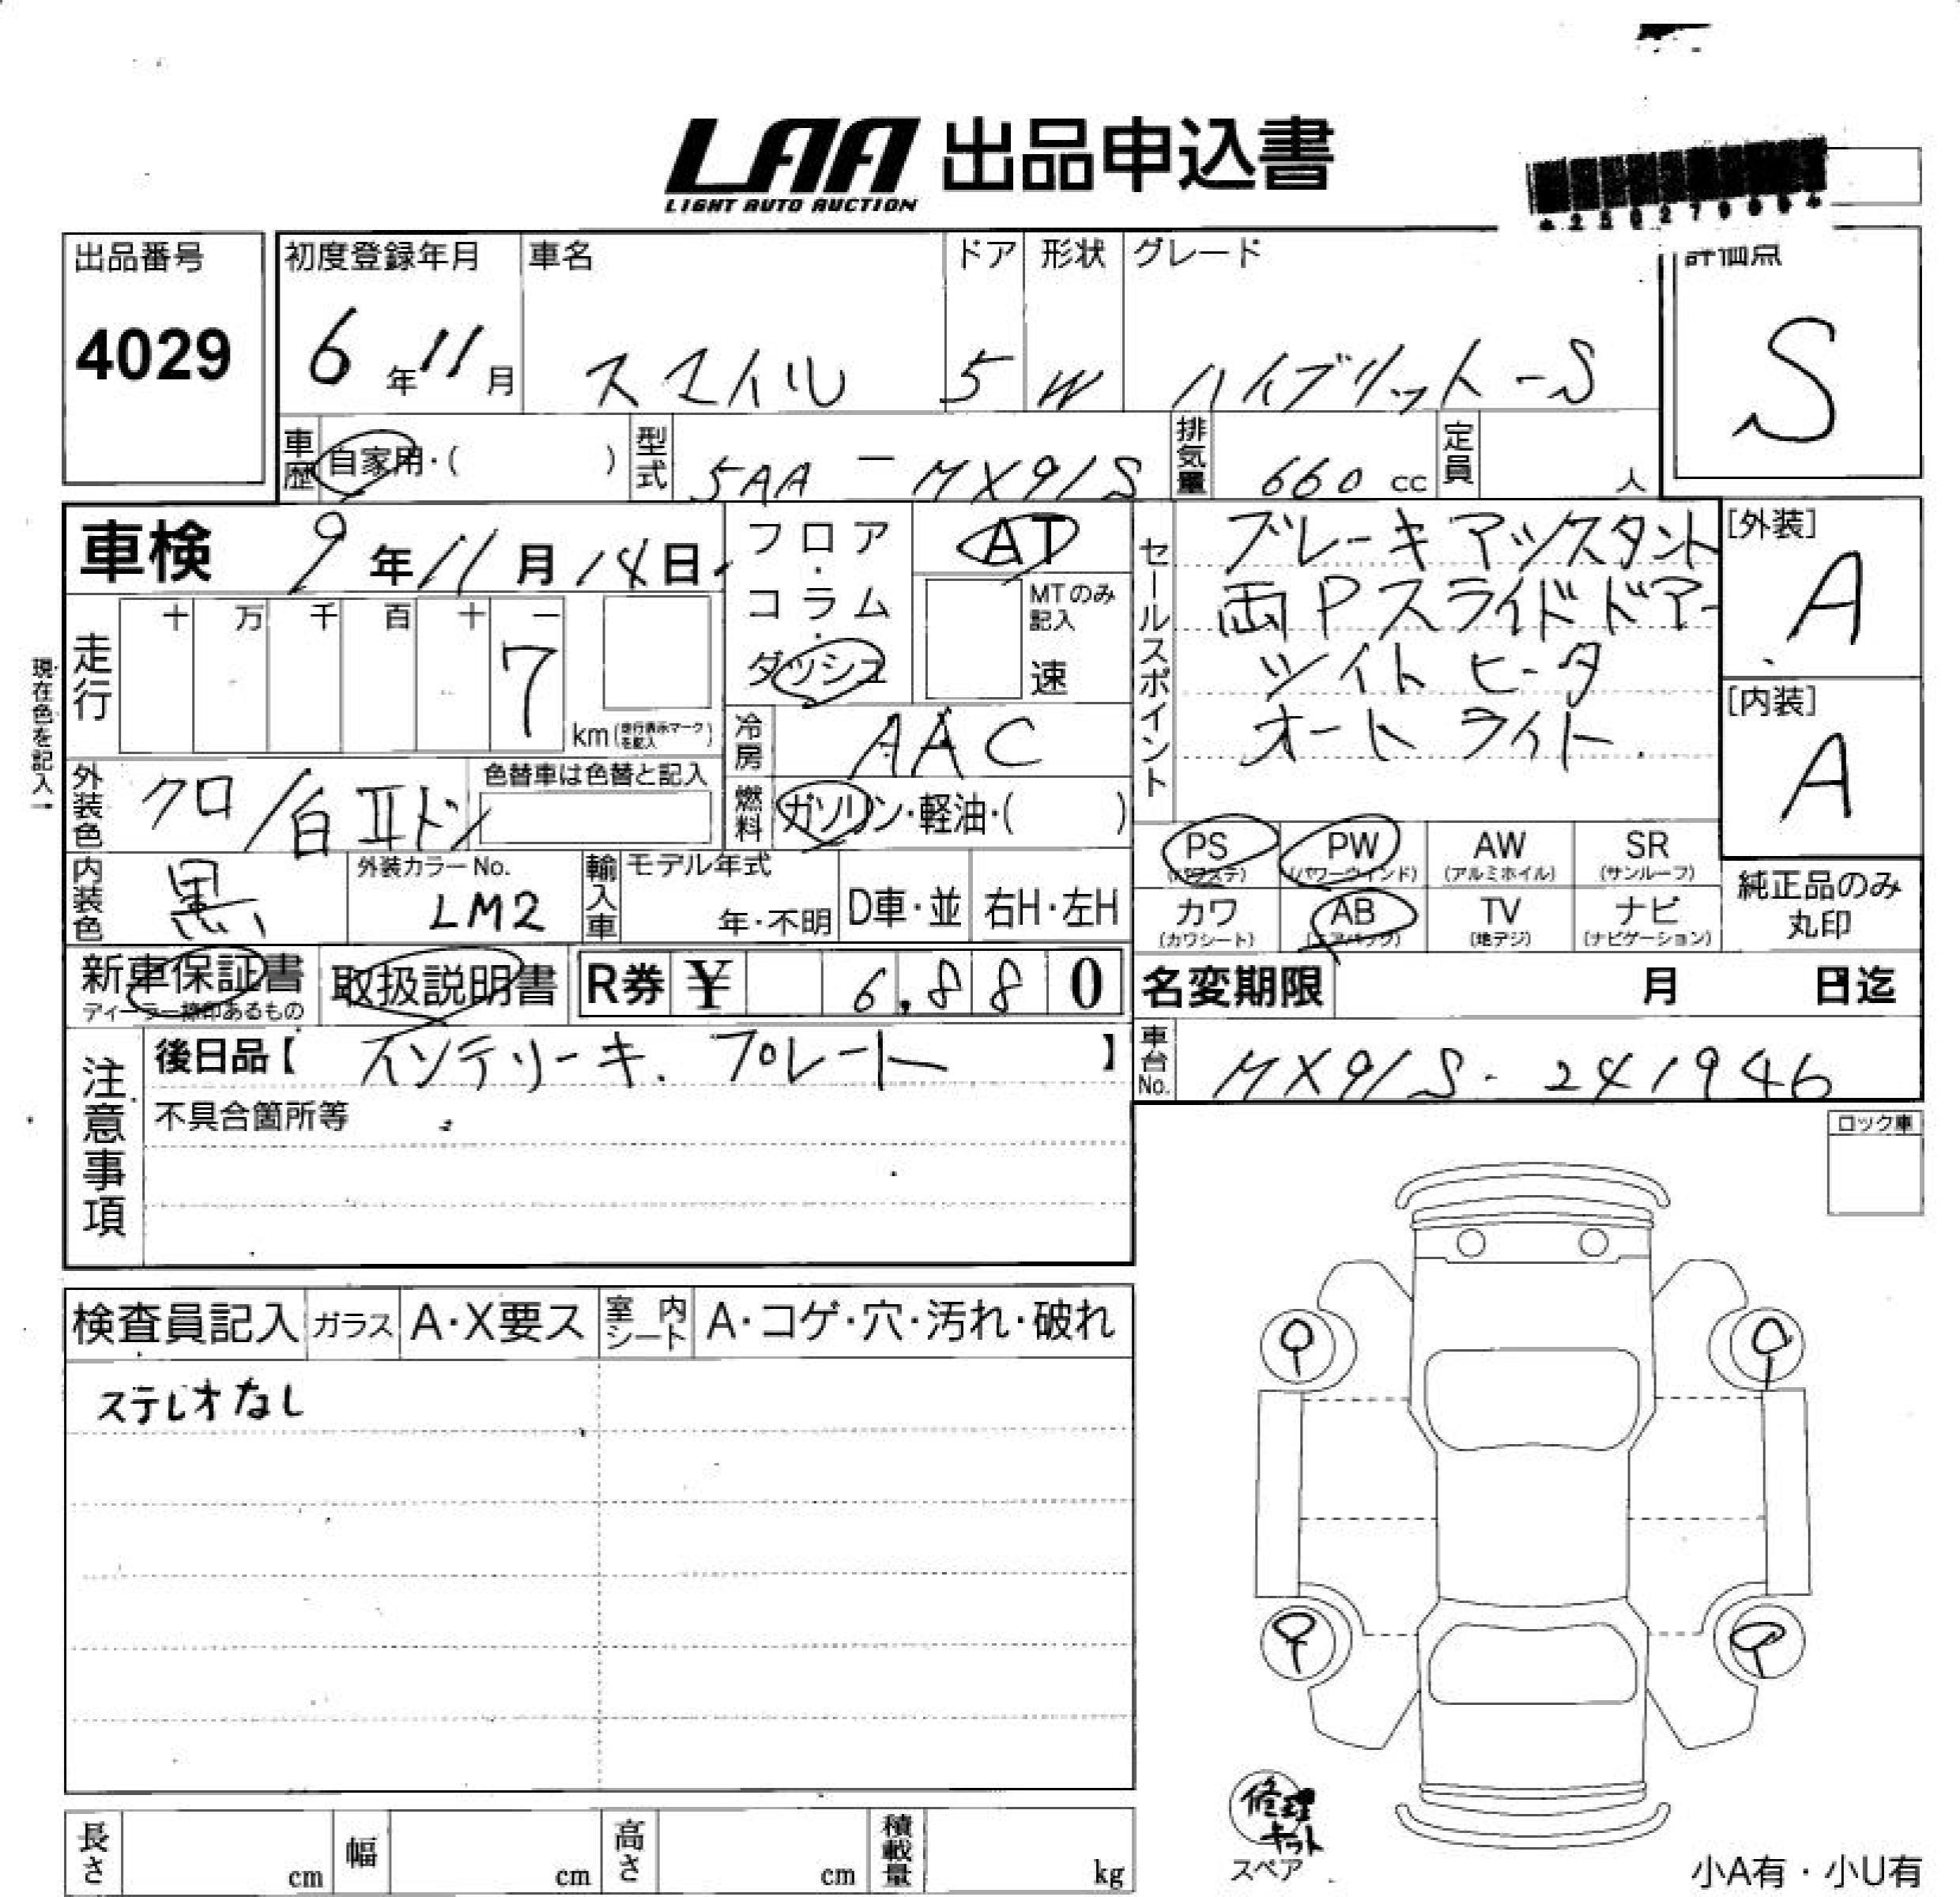 LAA 出品申込書
LIGHT AUTO AUCTION
出品番号
4029
初度登録年月
6年11月
車名
スマイル
ドア
5
形状
W
グレード
ハイブリット-S
評価点
S
車歴
自家用・( )
型式
5AA-MX91S
排気量
660 cc
定員
人
車検
9年11月14日
フロア・コラム・ダッシュ
AT
MTのみ記入
速
セールスポイント
ブレーキアッスタント
両Pスライドドアー
シイトヒータ
オートライト
[外装]
A
[内装]
A
走行
十 万 千 百 十 一
7
km(走行表示マークを記入)
現在色を記入→
冷房
AAC
外装色
クロ/白 IIトン
色替車は色替と記入
燃料
ガソリン・軽油・( )
PS (パワステ)
PW (パワーウインド)
AW (アルミホイル)
SR (サンルーフ)
カワ (カワシート)
AB (エアバッグ)
TV (地デジ)
ナビ (ナビゲーション)
純正品のみ丸印
内装色
黒
外装カラーNo.
LM2
輸入車
モデル年式
年・不明
D車・並
右H・左H
新車保証書
ディーラー捺印あるもの
取扱説明書
R券 ¥ 6,880
名変期限 月 日迄
注意事項
後日品【 インテリーキ. プレート 】
車台No.
MX91S-241946
不具合箇所等
ロック車
検査員記入
ガラス
A・X要ス
室内シート
A・コゲ・穴・汚れ・破れ
ステレオなし
修理キット
スペア
長さ cm
幅 cm
高さ cm
積載量 kg
小A有・小U有